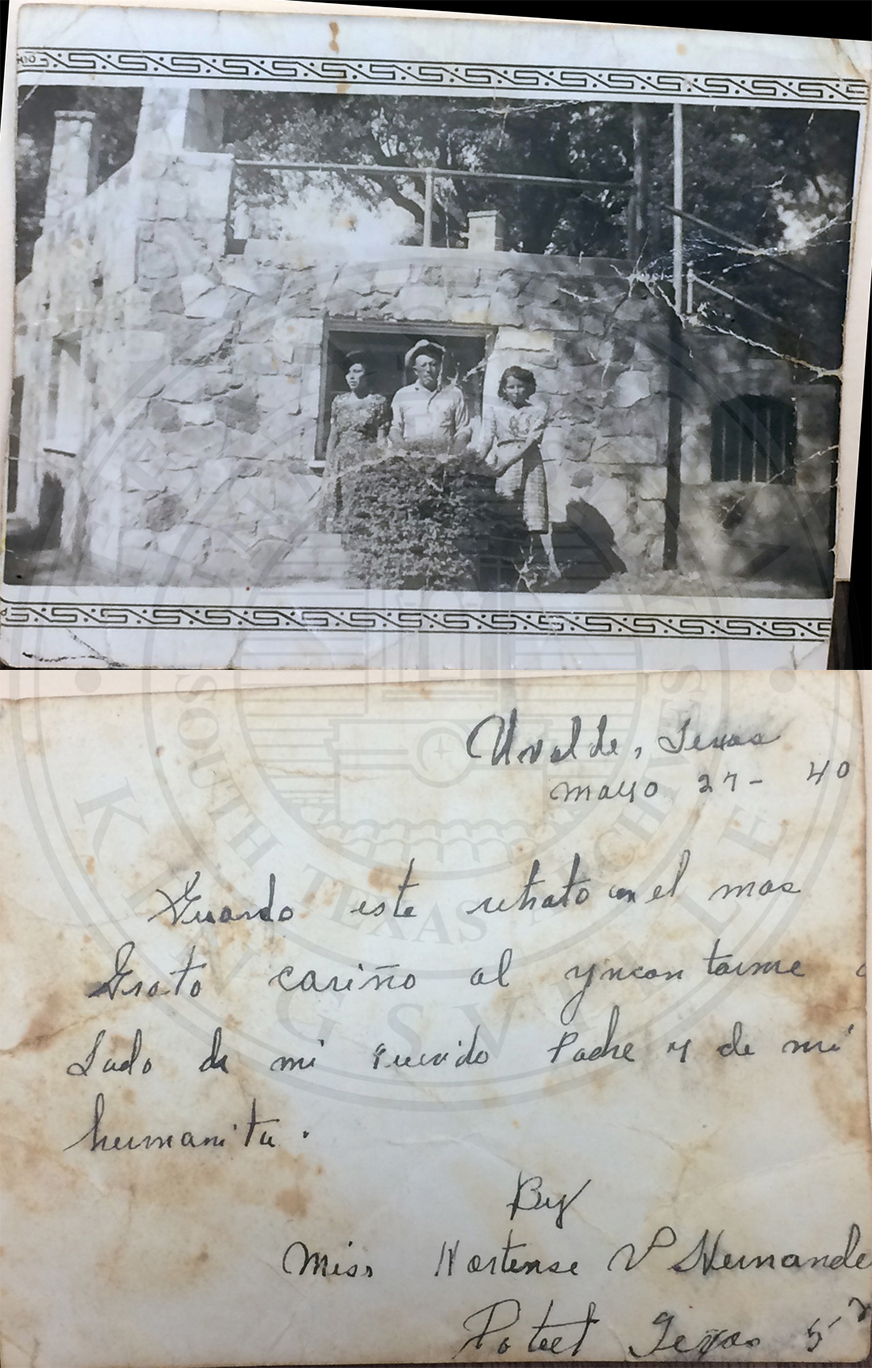 Uvalde, Texas
Mayo 27- 40
Guardo este retrato con el mas
Grato cariño al yncontarme a
Lado de mi querido Padre y de mi
hermanita.
By
Miss Hortense V Hernande
Poteet Texas 5
SOUTH TEXAS ARCHIVES
KINGSVILLE